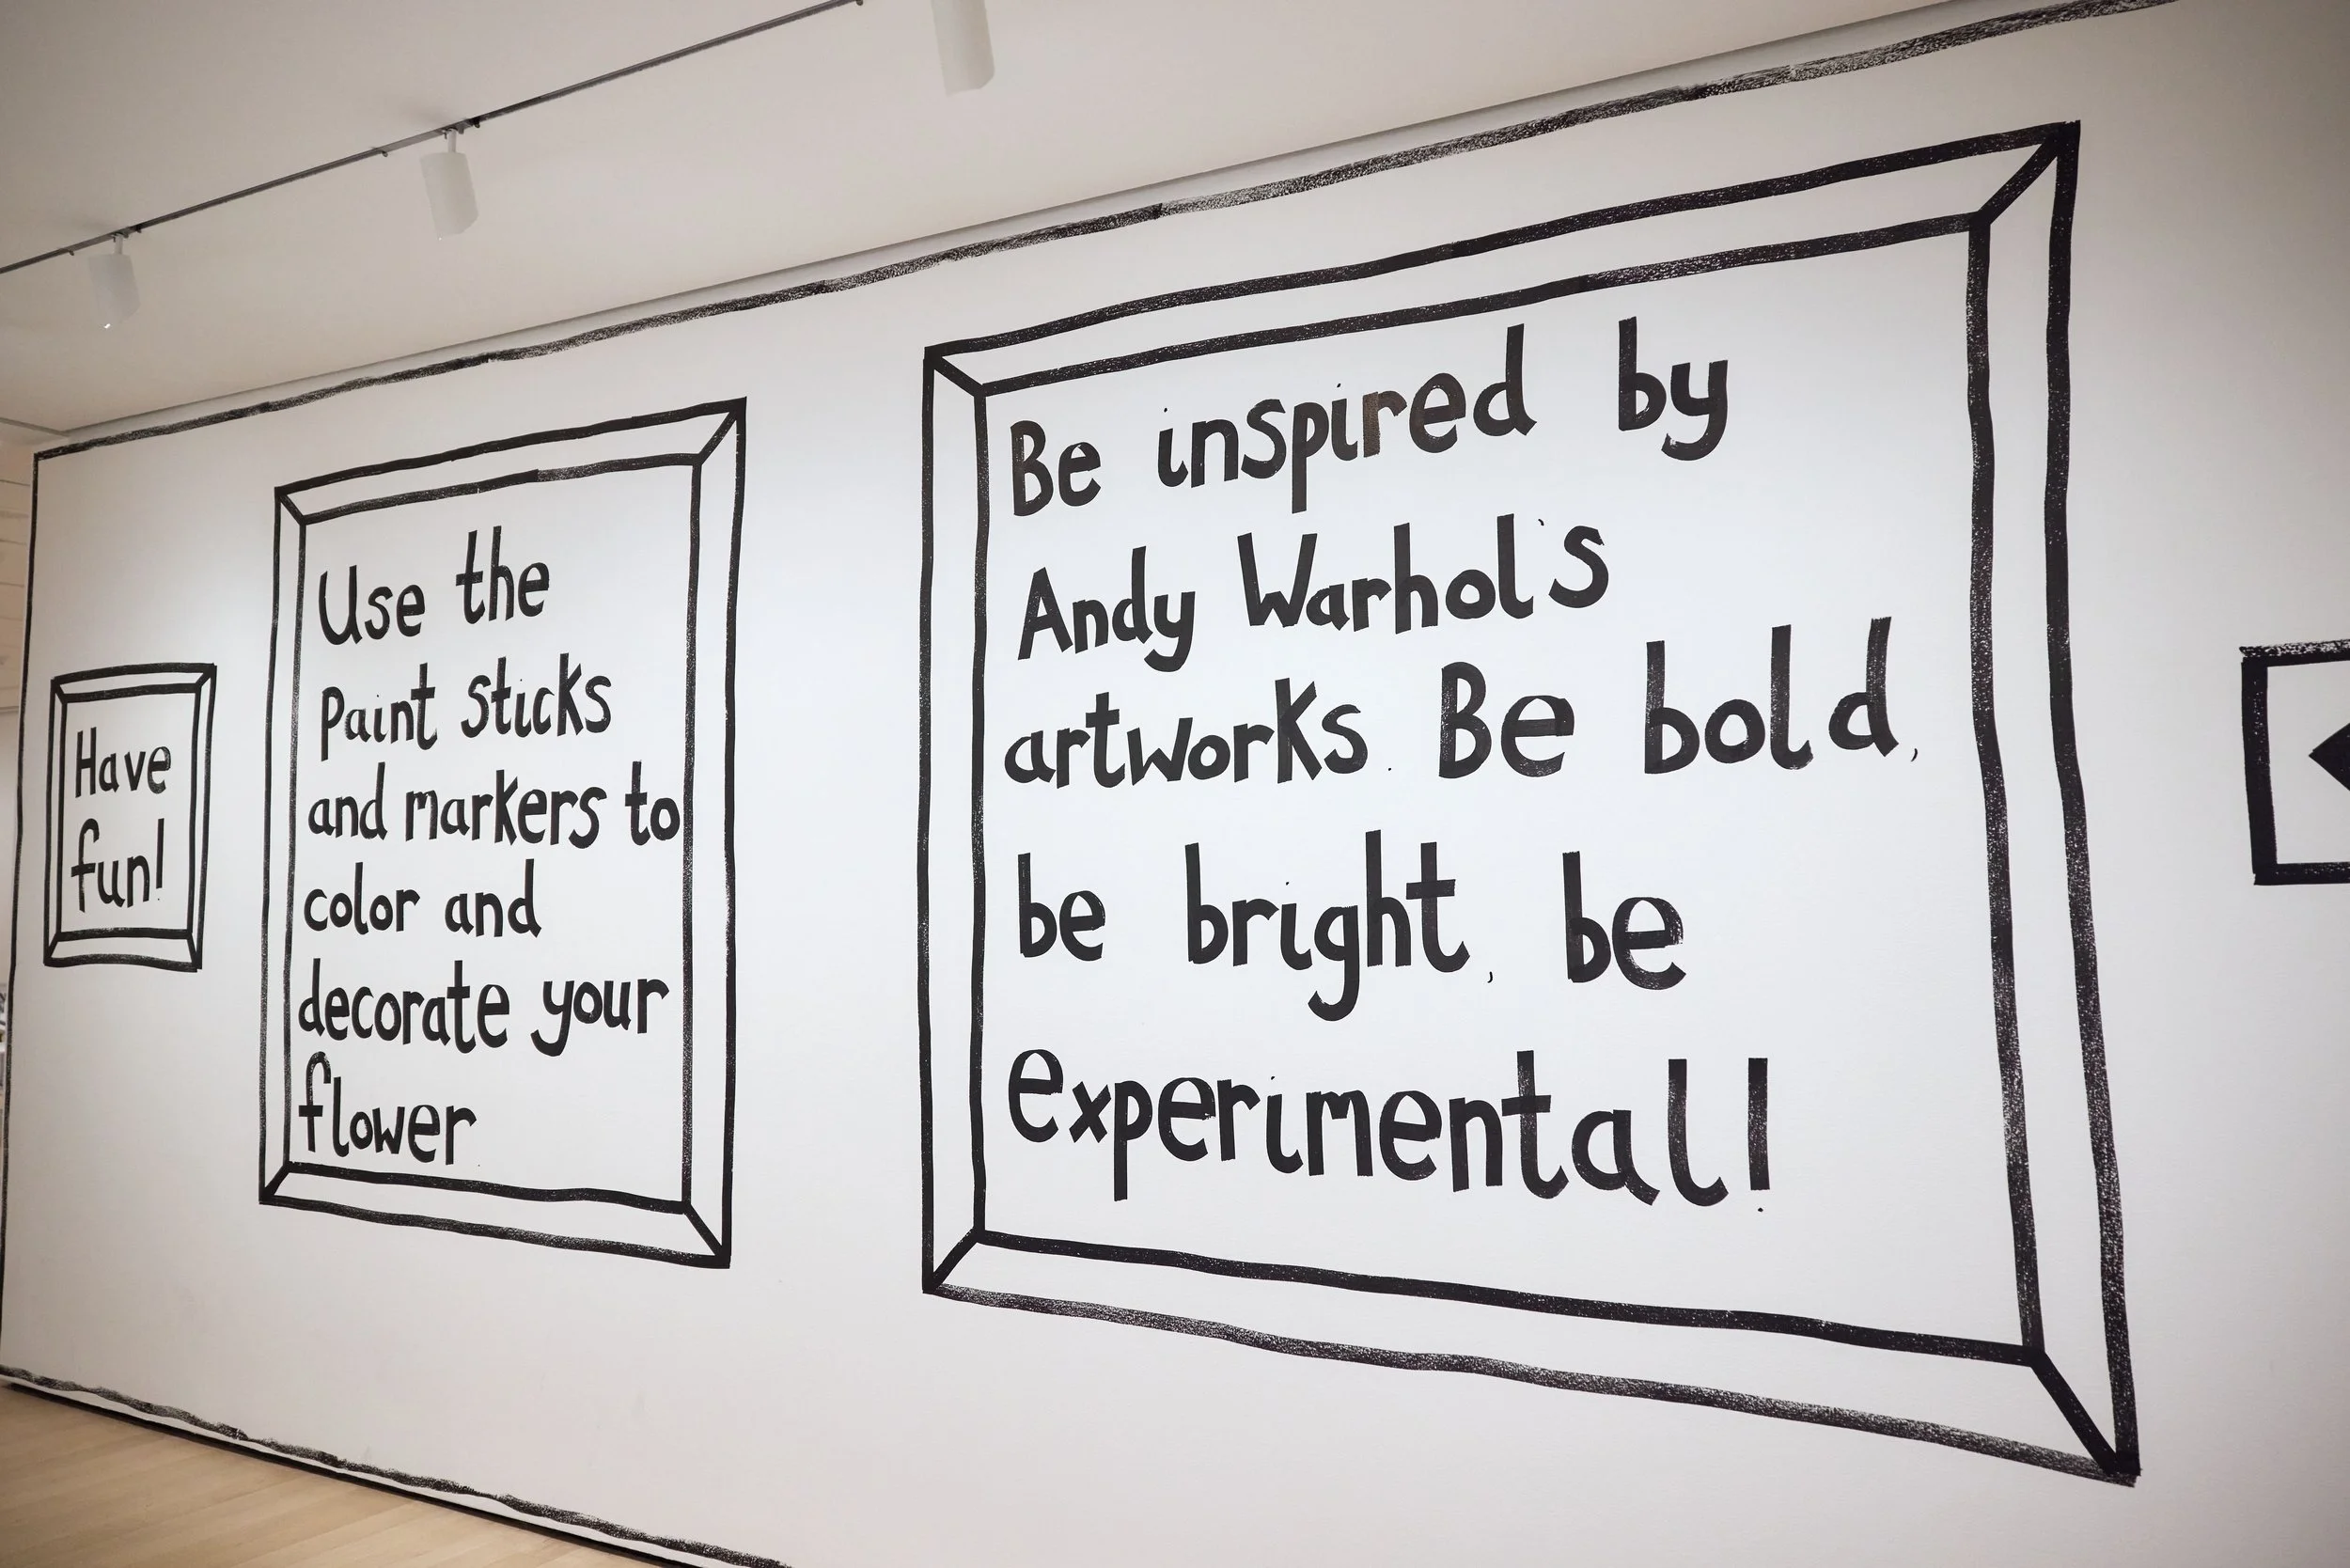 Have
fun!
Use the
Paint sticks
and markers to
color and
decorate your
flower.
Be inspired by
Andy Warhol's
artworks. Be bold,
be bright, be
experimental!